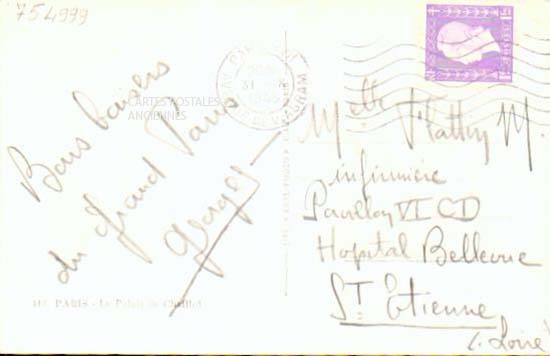 754999
Bons baisers
du grand Paris
Georges
CARTES POSTALES
ANCIENNES
PARIS - Le Palais de Chaillot
Melle Flattin M.
infirmière
Pavillon VI CD
Hopital Bellevue
St Etienne
Loire